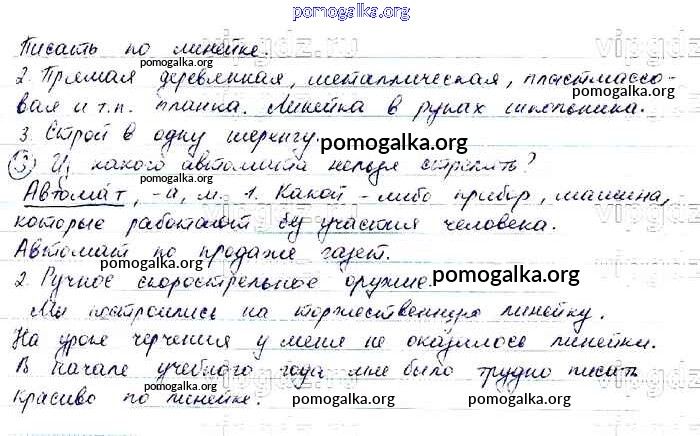 pomogalka.org
Писать по линейке.
2. Прямая деревянная, металлическая, пластмассо-
вая и т.п. планка. Линейка в руках школьника.
3. Строй в одну шеренгу.
pomogalka.org
3) Из какого автомата нельзя стрелять?
Автомат, -а, м. 1. Какой-либо прибор, машина,
pomogalka.org
которые работают без участия человека.
Автомат по продаже газет.
2. Ручное скорострельное оружие.
pomogalka.org
Мы построились на торжественную линейку.
На уроке черчения у меня не оказалось линейки.
В начале учебного года мне было трудно писать
pomogalka.org
красиво по линейке.
pomogalka.org
pomogalka.org
vipgdz.ru